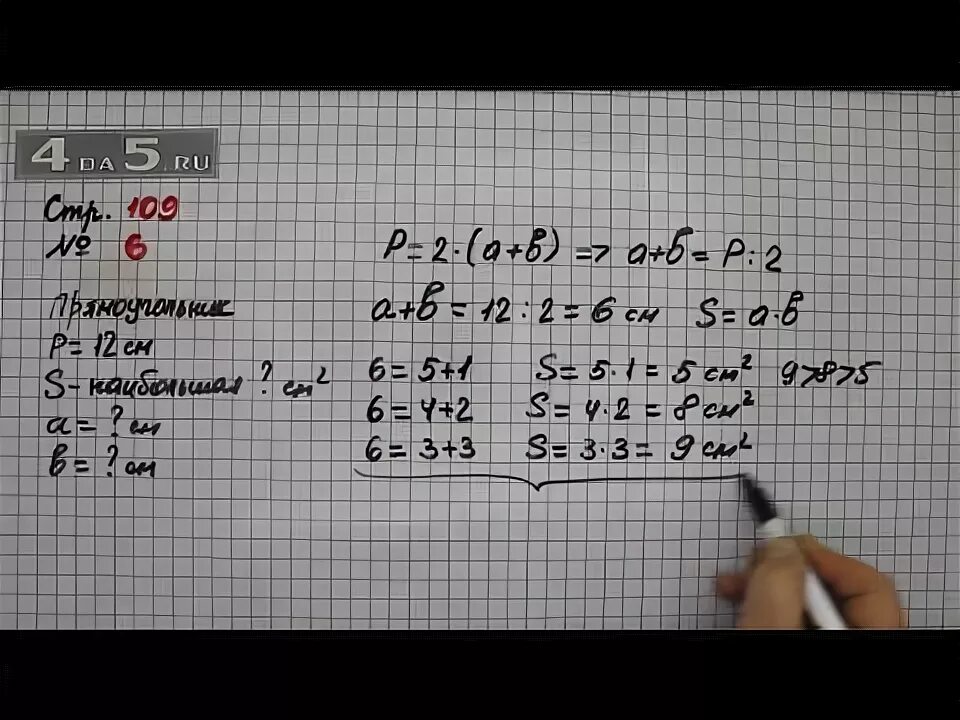 4DA5.RU
Стр. 109
№ 6
Прямоугольник
P = 12 см
S - наибольшая ? см²
a = ? см
в = ? см
P = 2 · (a + в) => a + б = P : 2
a + в = 12 : 2 = 6 см S = a · в
6 = 5 + 1 S = 5 · 1 = 5 см² 9 > 8 > 5
6 = 4 + 2 S = 4 · 2 = 8 см²
6 = 3 + 3 S = 3 · 3 = 9 см²